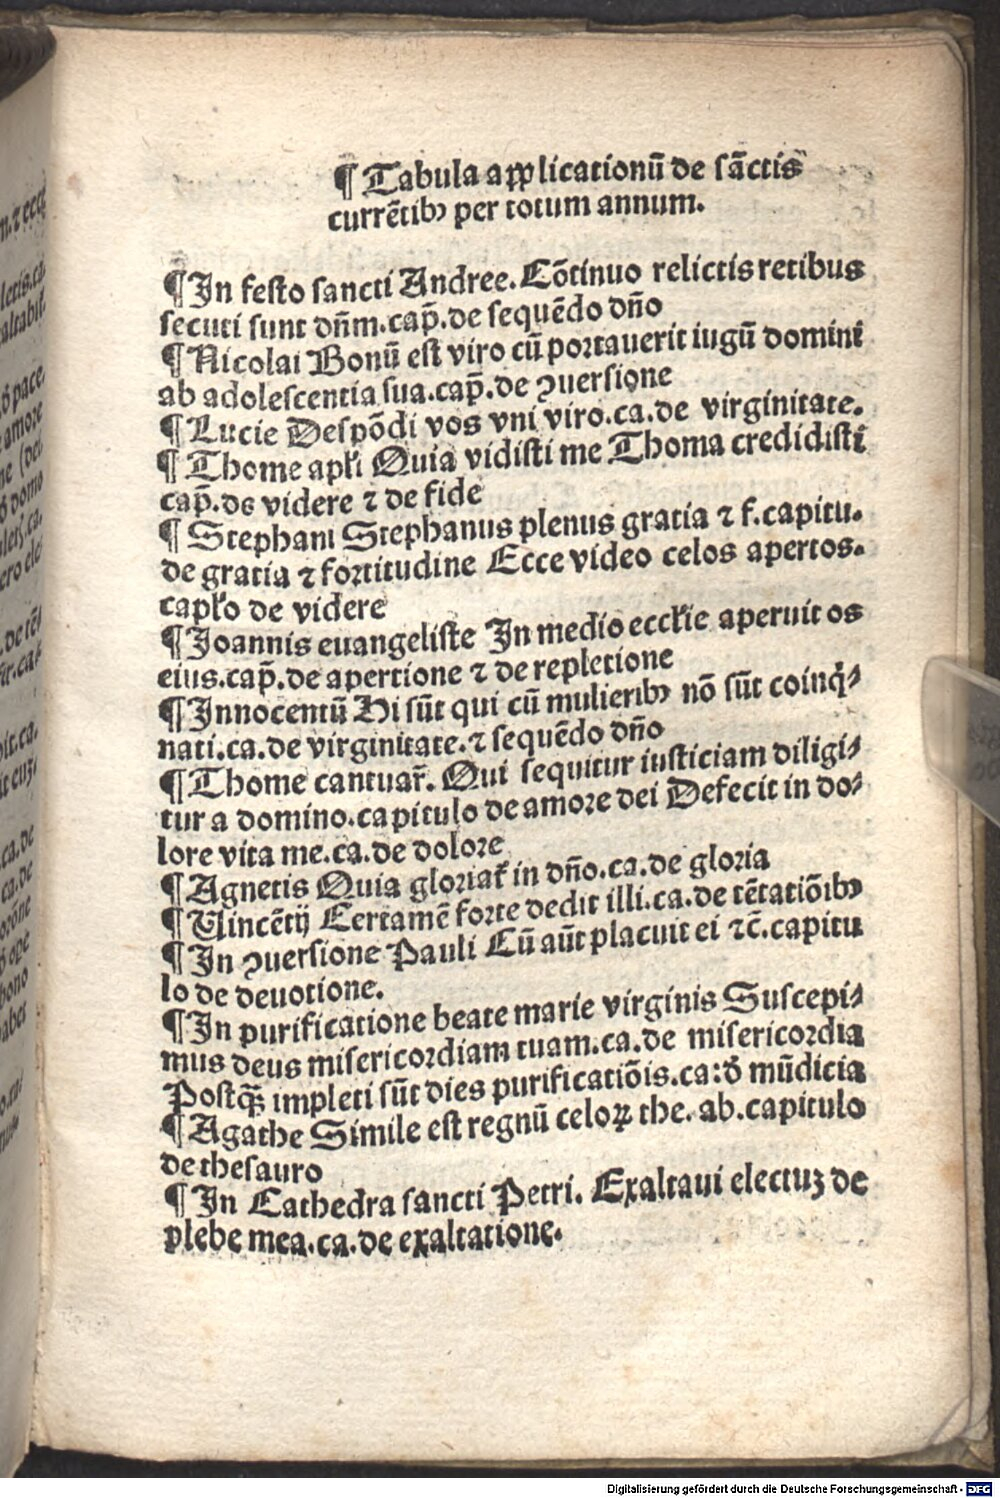 ¶ Tabula applicationũ de sãctis
currẽtibꝰ per totum annum.
¶ In festo sancti Andree. Cõtinuo relictis retibus
secuti sunt dñm. cap̃. de sequẽdo dño
¶ Nicolai Bonũ est viro cũ portauerit iugũ domini
ab adolescentia sua. cap̃. de ꝯuersione
¶ Lucie Despõdi vos vni viro. ca. de virginitate.
¶ Thome apl̃i Quia vidisti me Thoma credidisti
cap̃. de videre ⁊ de fide
¶ Stephani Stephanus plenus gratia ⁊ f. capitu.
de gratia ⁊ fortitudine Ecce video celos apertos.
capl̃o de videre
¶ Joannis euangeliste In medio eccl̃ie aperuit os
eius. cap̃. de apertione ⁊ de repletione
¶ Innocentũ Hi sũt qui cũ mulieribꝰ nõ sũt coinq̇⸗
nati. ca. de virginitate. ⁊ sequẽdo dño
¶ Thome cantuar̃. Qui sequitur iusticiam diligi⸗
tur a domino. capitulo de amore dei Defecit in do⸗
lore vita me. ca. de dolore
¶ Agnetis Quia gloriat̃ in dño. ca. de gloria
¶ Uincẽtij Certamẽ forte dedit illi. ca. de tẽtatiõibꝰ
¶ In ꝯuersione Pauli Cũ aũt placuit ei ⁊c̃. capitu
lo de deuotione.
¶ In purificatione beate marie virginis Suscepi⸗
mus deus misericordiam tuam. ca. de misericordia
Postq̃ȝ impleti sũt dies purificatiõis. ca: ð mũdicia
¶ Agathe Simile est regnũ celoꝝ the. ab. capitulo
de thesauro
¶ In Cathedra sancti Petri. Exaltaui electuȝ de
plebe mea. ca. de exaltatione.
Digitalisierung gefördert durch die Deutsche Forschungsgemeinschaft - DFG